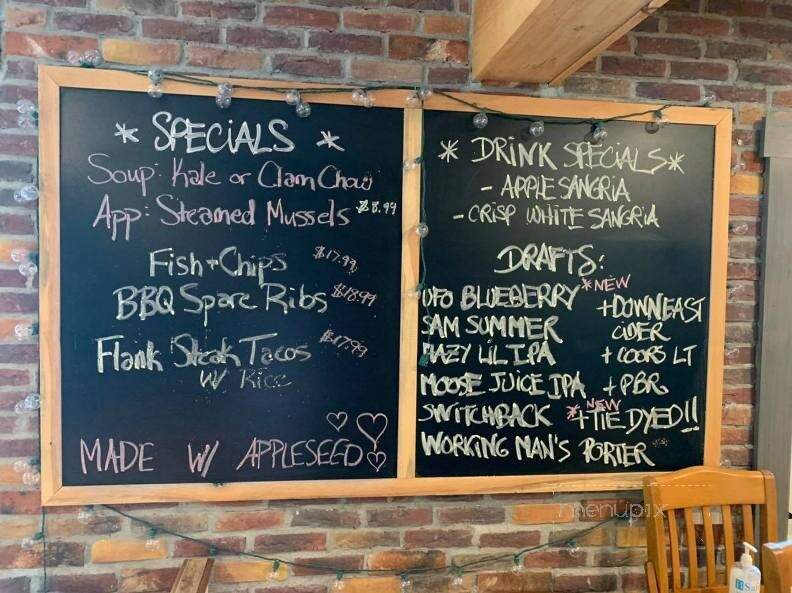 * SPECIALS *
Soup: Kale or Clam Chow
App: Steamed Mussels $8.99
Fish + Chips $17.99
BBQ Spare Ribs $18.99
Flank Steak Tacos $17.99
w/ Rice
MADE W/ APPLESEED
* DRINK SPECIALS *
- APPLE SANGRIA
- CRISP WHITE SANGRIA
DRAFTS:
UFO BLUEBERRY *NEW
SAM SUMMER
HAZY LIL IPA
MOOSE JUICE IPA
SWITCHBACK
WORKING MAN'S PORTER
+ DOWNEAST
CIDER
+ COORS LT
+ PBR
* NEW
+ TIE DYED!!
menupix